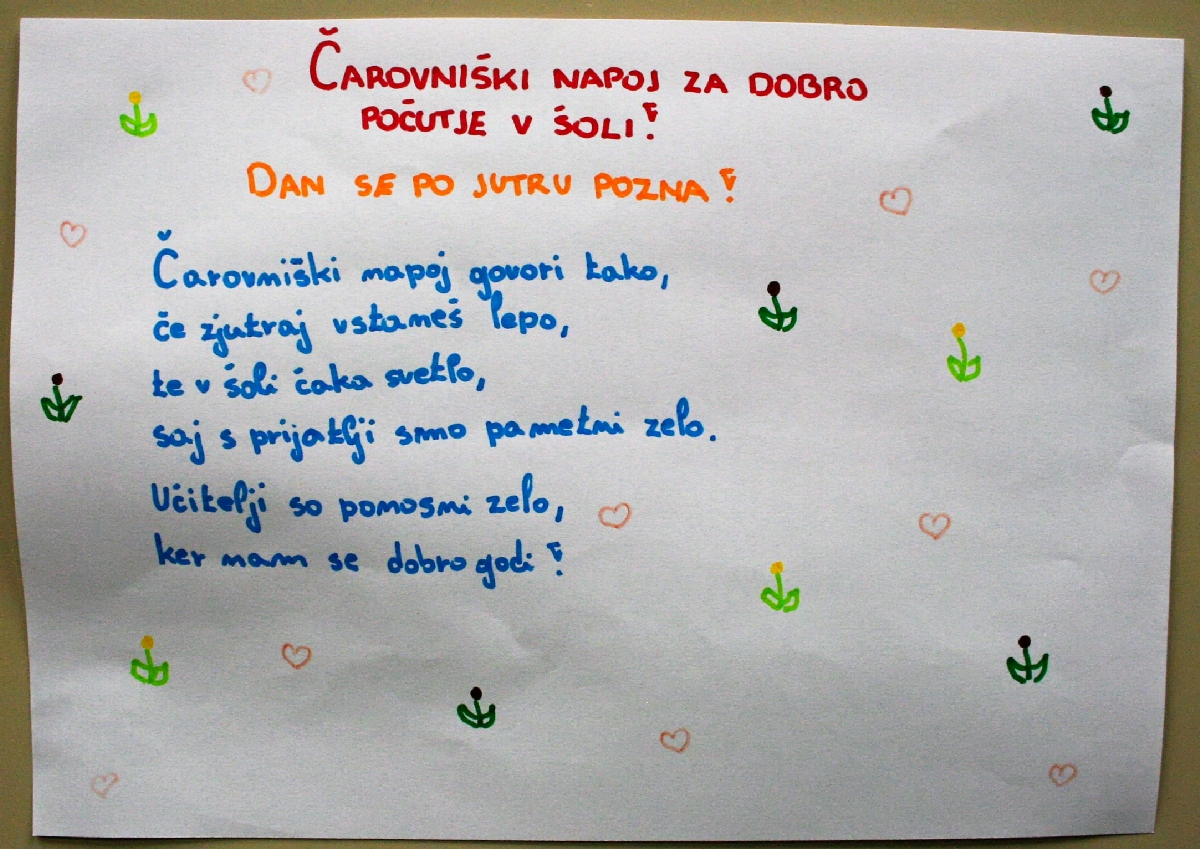 ČAROVNIŠKI NAPOJ ZA DOBRO
POČUTJE V ŠOLI!
DAN SE PO JUTRU POZNA!
Čarovniški napoj govori tako,
če zjutraj vstaneš lepo,
te v šoli čaka svetlo,
saj s prijatlji smo pametni zelo.
Učitelji so ponosni zelo,
ker nam se dobro godi!